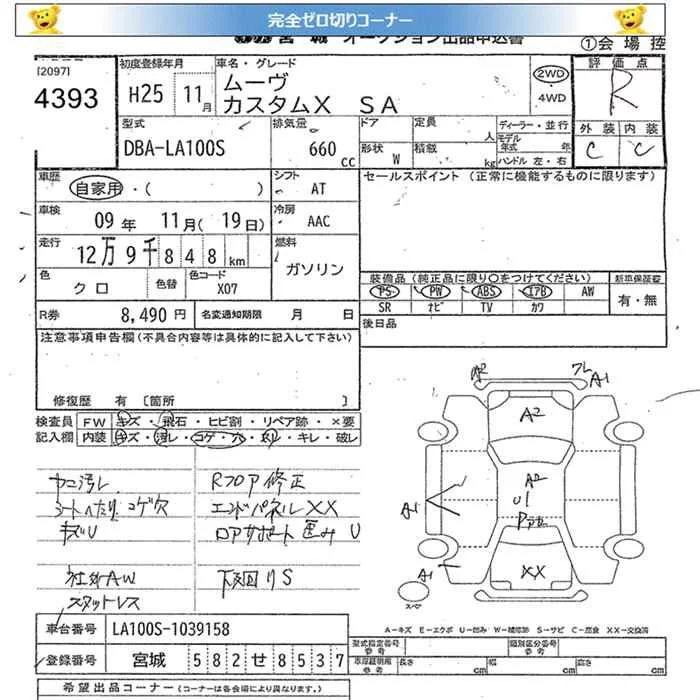 完全ゼロ切りコーナー
宮城 オークション出品申込書
①会場控
[2097]
4393
初度登録年月
H25 11月
車名・グレード
ムーヴ
カスタムX SA
2WD
・4WD
評価点
R
外装 内装
C C
型式
DBA-LA100S
排気量
660 cc
ドア
形状 W
定員 人
積載 kg
ディーラー・並行
モデル年式 年
ハンドル 左・右
車歴
自家用・( )
シフト
AT
セールスポイント (正常に機能するものに限ります)
車検
09年 11月(19日)
冷房
AAC
走行
12万9千848km
燃料
ガソリン
色
クロ
色替
色コード
X07
装備品 (純正品に限り○をつけてください)
新車保証書
PS PW ABS エアB AW
SR ナビ TV カワ
有・無
R券 8,490円
名変通知期限 月 日
後日品
注意事項申告欄(不具合内容等は具体的に記入して下さい)
修復歴 有 [箇所 ]
検査員記入欄
FW キズ・飛石・ヒビ割・リペア跡・×要
内装 キズ・汚レ・コゲ・穴・ネジ・キレ・破レ
ヤニ汚レ
シートヘタリ コゲ穴
キズU
社外AW
スタットレス
Rフロア修正
エンドパネルXX
ロアサポート歪みU
下廻りS
A2
A1
A2
U1
A1
A1
XX
スペア
A−キズ E−エクボ U−凹み W−補修跡 S−サビ C−腐食 XX−交換済
車台番号 LA100S-1039158
登録番号 宮城 582せ8537
型式指定番号 参考
類別区分番号 参考
車庫証明用 参考
長さ cm 幅 cm 高さ cm
希望出品コーナー (コーナーは各会場により異なります。)